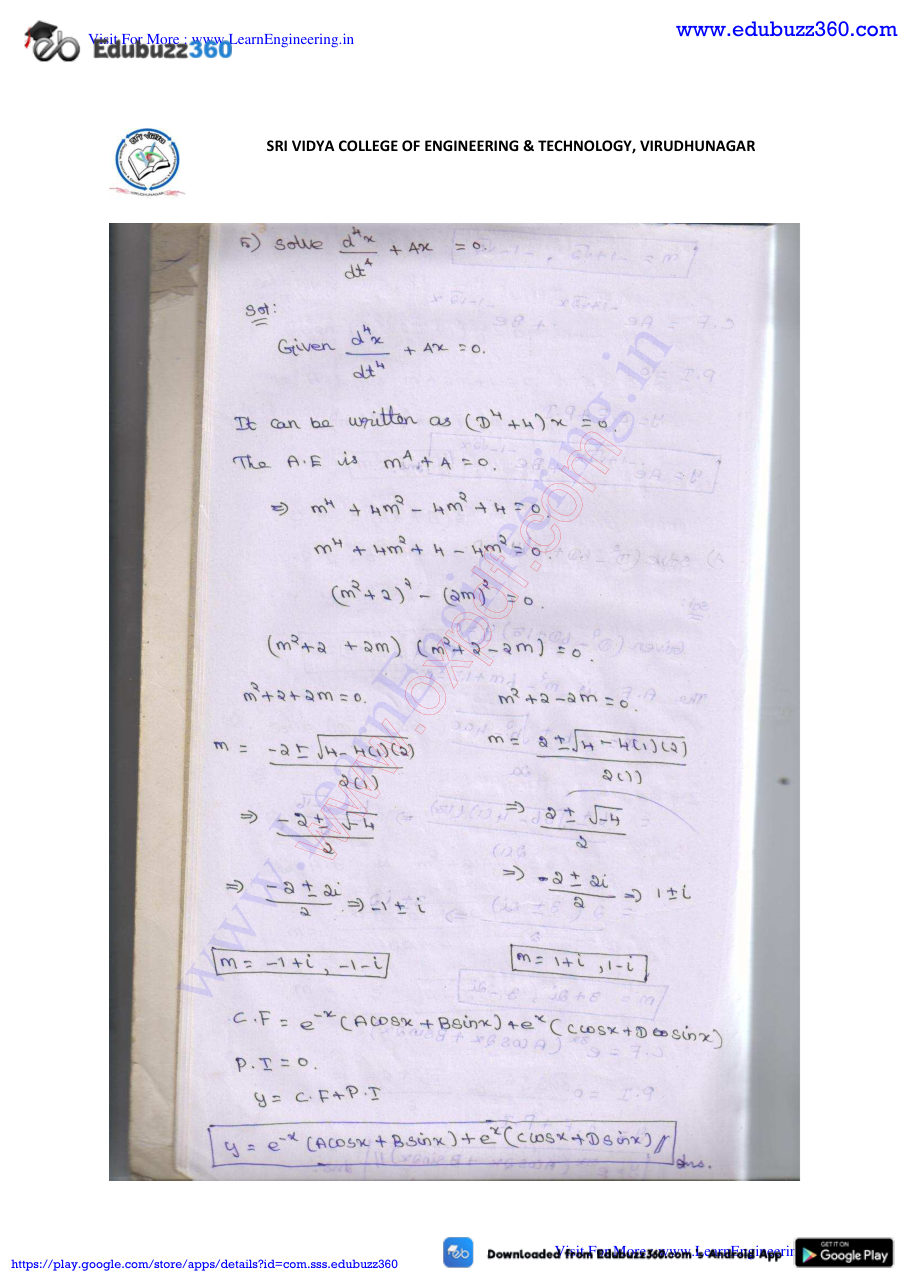 Visit For More : www.LearnEngineering.in
Edubuzz360
www.edubuzz360.com
SRI VIDYA COLLEGE OF ENGINEERING & TECHNOLOGY, VIRUDHUNAGAR
5) Solve d⁴x/dt⁴ + 4x = 0.
Sol:
Given d⁴x/dt⁴ + 4x = 0.
It can be written as (D⁴+4)x = 0.
The A.E is m⁴ + 4 = 0.
⇒ m⁴ + 4m² - 4m² + 4 = 0.
m⁴ + 4m² + 4 - 4m² = 0.
(m²+2)² - (2m)² = 0.
(m²+2 +2m) (m²+2-2m) = 0.
m²+2+2m = 0. m²+2-2m = 0.
m = -2 ± √4-4(1)(2) / 2(1) m = 2 ± √4-4(1)(2) / 2(1)
⇒ -2 ± √-4 / 2 ⇒ 2 ± √-4 / 2
⇒ -2 ± 2i / 2 ⇒ -1 ± i ⇒ -2 ± 2i / 2 ⇒ 1 ± i
m = -1+i, -1-i m = 1+i, 1-i
C.F = e⁻ˣ (Acosx + Bsinx) + eˣ (Ccosx + D sinx)
P.I = 0.
y = C.F + P.I
y = e⁻ˣ (Acosx + Bsinx) + eˣ (Ccosx + Dsinx) //
Ans.
www.LearnEngineering.in
www.oxpdf.com
https://play.google.com/store/apps/details?id=com.sss.edubuzz360
Downloaded from Edubuzz360.com's Android App
Visit For More : www.LearnEngineerin
GET IT ON
Google Play